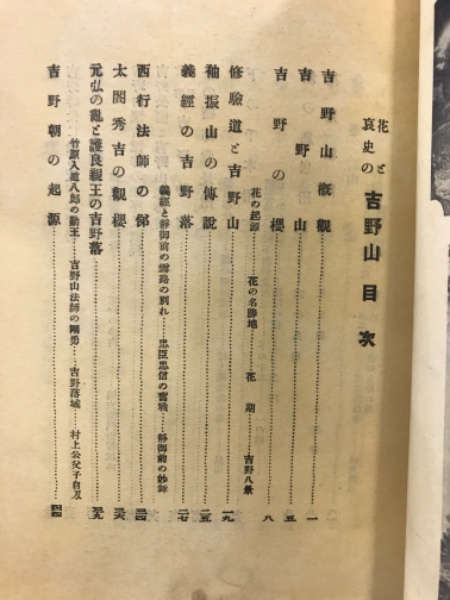 花と
哀史の 吉野山目次
吉野山概観……一
吉野山……五
吉野の櫻……八
花の起源……花の名勝地……花期……吉野八景
修驗道と吉野山……一九
袖振山の傳說……二五
義經の吉野落……二七
義經と靜御前の雪路の別れ……忠臣忠信の奮戰……靜御前の妙舞
西行法師の俤……三四
太閤秀吉の觀櫻……三六
元弘の亂と護良親王の吉野落……三九
竹原入道八郎の勤王……吉野山法師の剛勇……吉野落城……村上公父子自刃
吉野朝の起源……四四